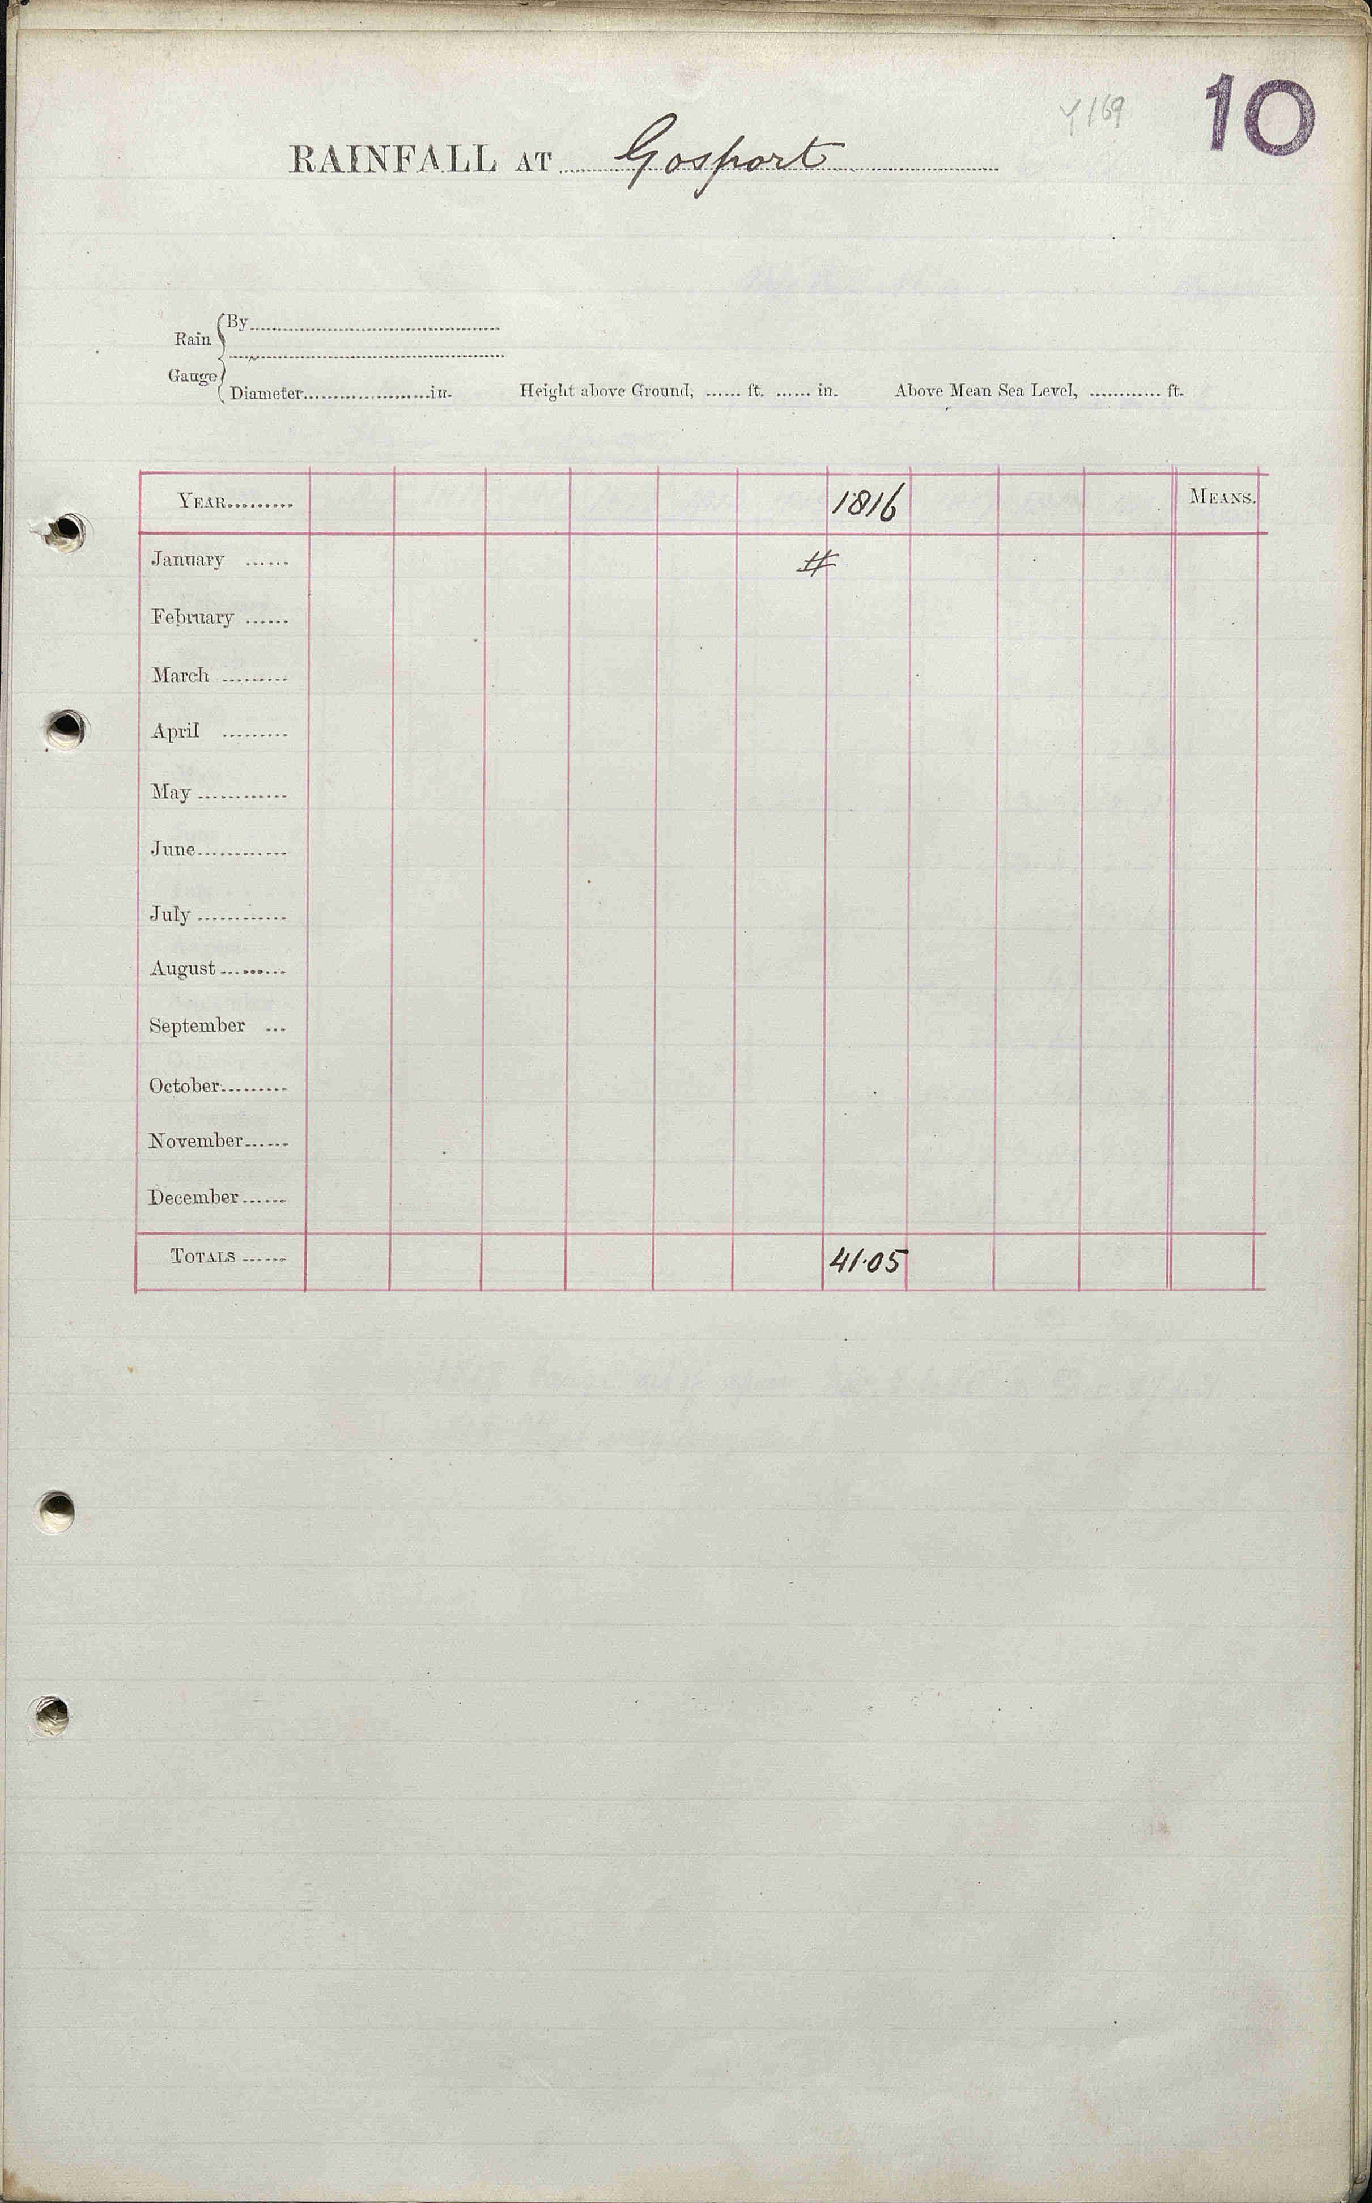 Y169
10
RAINFALL AT Gosport
Rain Gauge
By
Diameter in. Height above Ground, ft. in. Above Mean Sea Level, ft.
YEAR 1816 MEANS.
January #
February
March
April
May
June
July
August
September
October
November
December
TOTALS 41.05